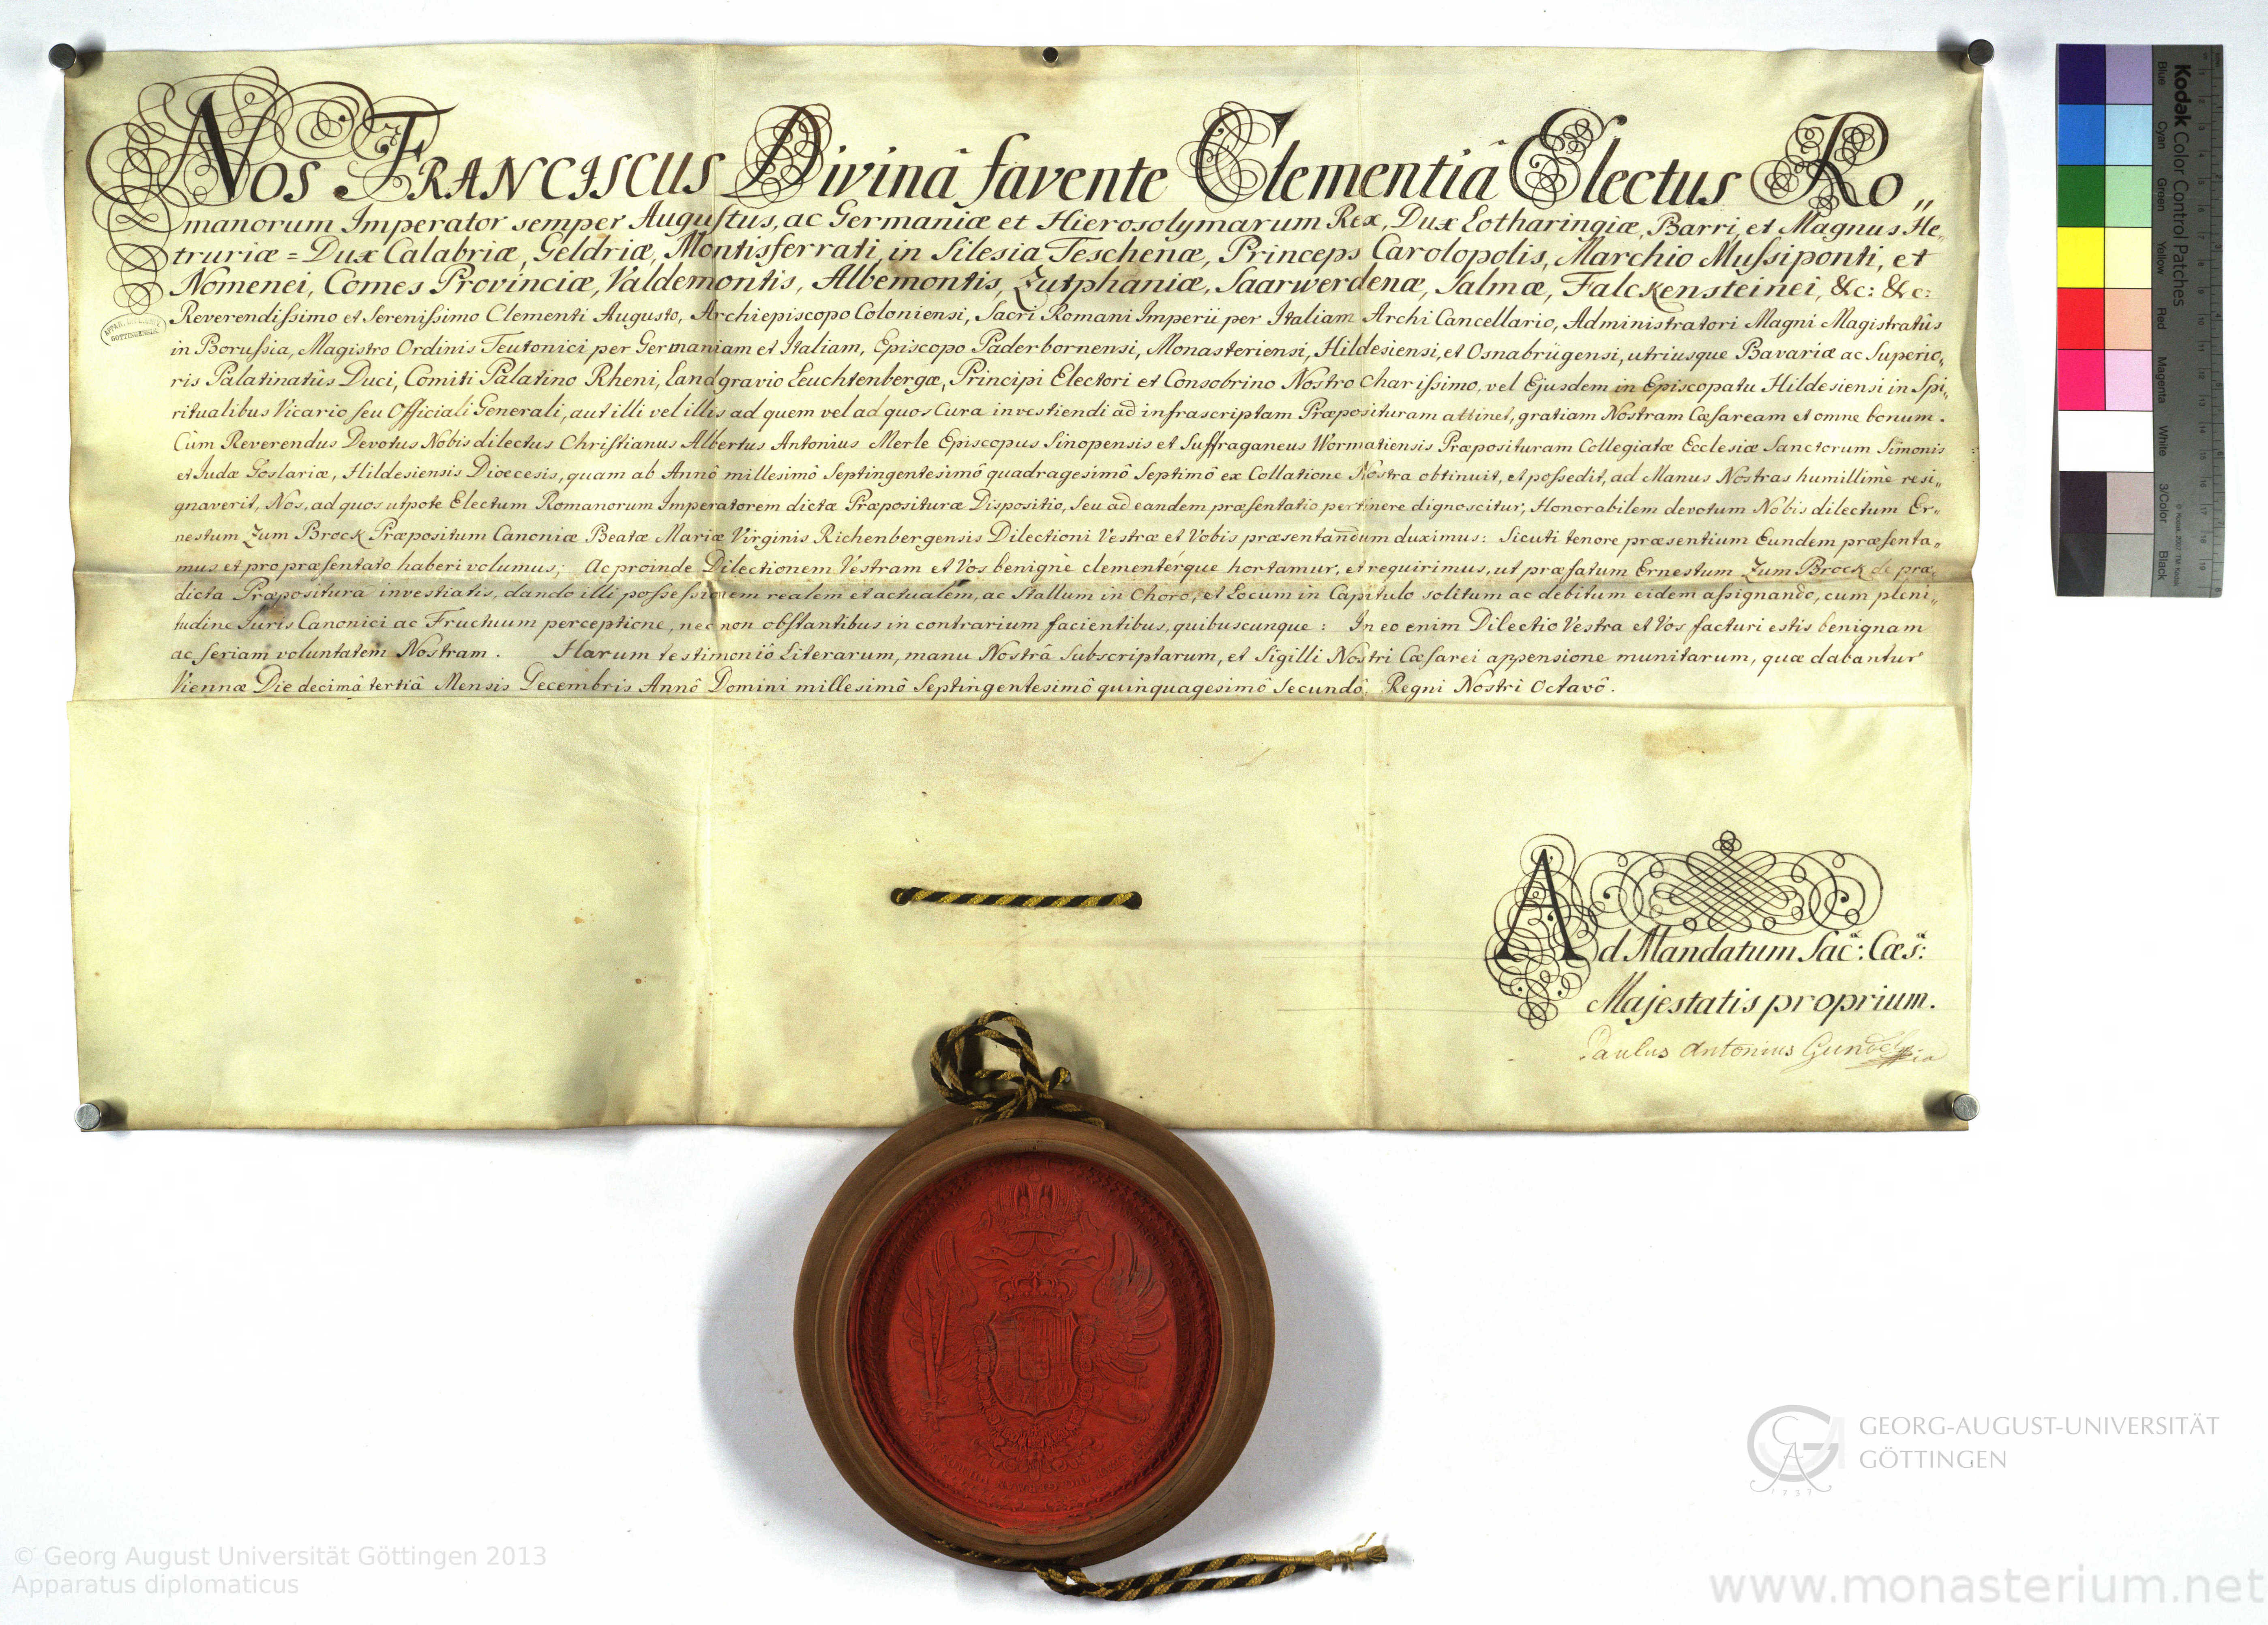 Nos Franciscus Divinâ favente Clementiâ Electus Ro„
manorum Imperator semper Augustus, ac Germaniæ et Hierosolymarum Rex, Dux Lotharingiæ, Barri, et Magnus He„
truriæ = Dux Calabriæ, Geldriæ, Montisferrati, in Silesia Teschenæ, Princeps Carolopolis, Marchio Mussiponti, et
Nomenei, Comes Provinciæ, Valdemontis, Albemontis, Zutphaniæ, Saarwerdenæ, Salmæ, Falckensteinei, &c: &c:
Reverendissimo et Serenissimo Clementi Augusto, Archiepiscopo Coloniensi, Sacri Romani Imperii per Italiam Archi Cancellario, Administratori Magni Magistratûs
in Borussia, Magistro Ordinis Teutonici per Germaniam et Italiam, Episcopo Paderbornensi, Monasteriensi, Hildesiensi, et Osnabrügensi, utriusque Bavariæ ac Superio„
ris Palatinatûs Duci, Comiti Palatino Rheni, Landgravio Leuchtenbergæ, Principi Electori et Consobrino Nostro charissimo, vel Ejusdem in Episcopatu Hildesiensi in Spi„
ritualibus Vicario seu Officiali Generali, aut illi vel illis ad quem vel ad quos cura investiendi ad infrascriptam Præposituram attinet, gratiam Nostram Cæsaream et omne bonum.
Cùm Reverendus Devotus Nobis dilectus Christianus Albertus Antonius Merle Episcopus Sinopensis et Suffraganeus Wormatiensis Præposituram Collegiatæ Ecclesiæ Sanctorum Simonis
et Judæ Goslariæ, Hildesiensis Diœcesis, quam ab Annô millesimô Septingentesimô quadragesimô Septimô ex Collatione Nostra obtinuit, et possedit, ad Manus Nostras humillimè resi„
gnaverit, Nos, ad quos utpote Electum Romanorum Imperatorem dictæ Præposituræ Dispositio, seu ad eandem præsentatio pertinere dignoscitur, Honorabilem devotum Nobis dilectum Er„
nestum Zum Brock Præpositum Canoniæ Beatæ Mariæ Virginis Richenbergensis Dilectioni Vestræ et Vobis præsentandum duximus: Sicuti tenore præsentium Eundem præsenta„
mus et pro præsentato haberi volumus; Ac proinde Dilectionem Vestram et Vos benignè clementérque hortamur, et requirimus, ut præfatum Ernestum Zum Brock de præ„
dicta Præpositura investiatis, dando illi possessionem realem et actualem, ac Stallum in Choro, et Locum in Capitulo solitum ac debitum eidem assignando, cum pleni„
tudine Juris Canonici ac Fructuum perceptione, nec non obstantibus in contrarium facientibus, quibuscunque: In eo enim Dilectio Vestra et Vos facturi estis benignam
ac seriam voluntatem Nostram. Harum testimoniô Literarum, manu Nostrâ Subscriptarum, et Sigilli Nostri Cæsarei appensione munitarum, quæ dabantur
Viennæ Die decimâ tertiâ Mensis Decembris Annô Domini millesimô Septingentesimô quinquagesimô Secundô, Regni Nostri Octavô.
Ad Mandatum Sac: Cæs:
Majestatis proprium.
Paulus Antonius Gundel
Kodak Color Control Patches
Blue Cyan Green Yellow Red Magenta White 3/Color Black
GEORG-AUGUST-UNIVERSITÄT
GÖTTINGEN
© Georg August Universität Göttingen 2013
Apparatus diplomaticus
www.monasterium.net